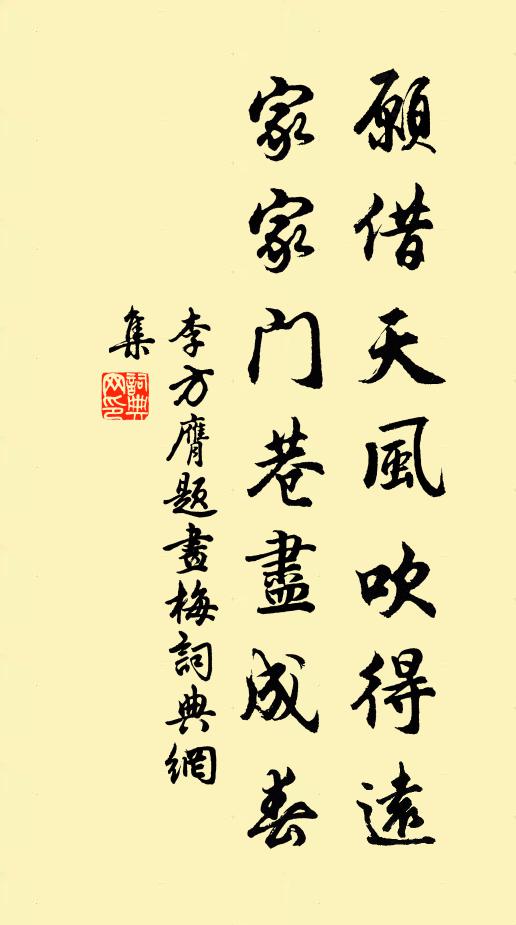 願借天風吹得遠
家家門巷盡成春
李方膺題畫梅詞典網
集
詞典
网印